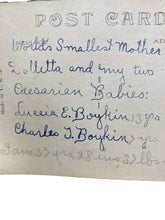 POST CARD
Worlds Smallest Mother
Lolletta and my two
Caesarian Babies:
Luccia E. Boykin 13 yrs
Charles T. Boykin, 7 yrs
I am 37 yrs 28 ins 37 lbs.